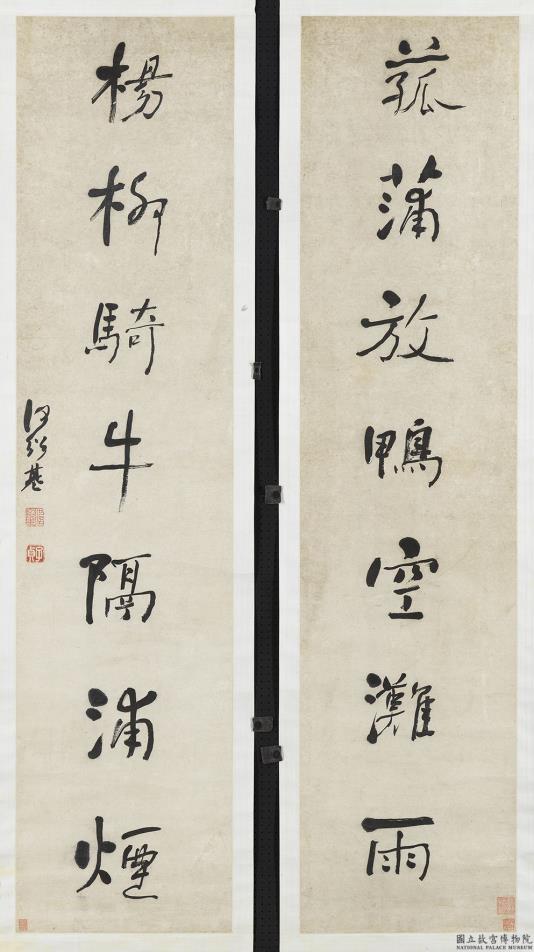 菰蒲放鴨空灘雨
楊柳騎牛隔浦煙
何紹基
國立故宮博物院
NATIONAL PALACE MUSEUM